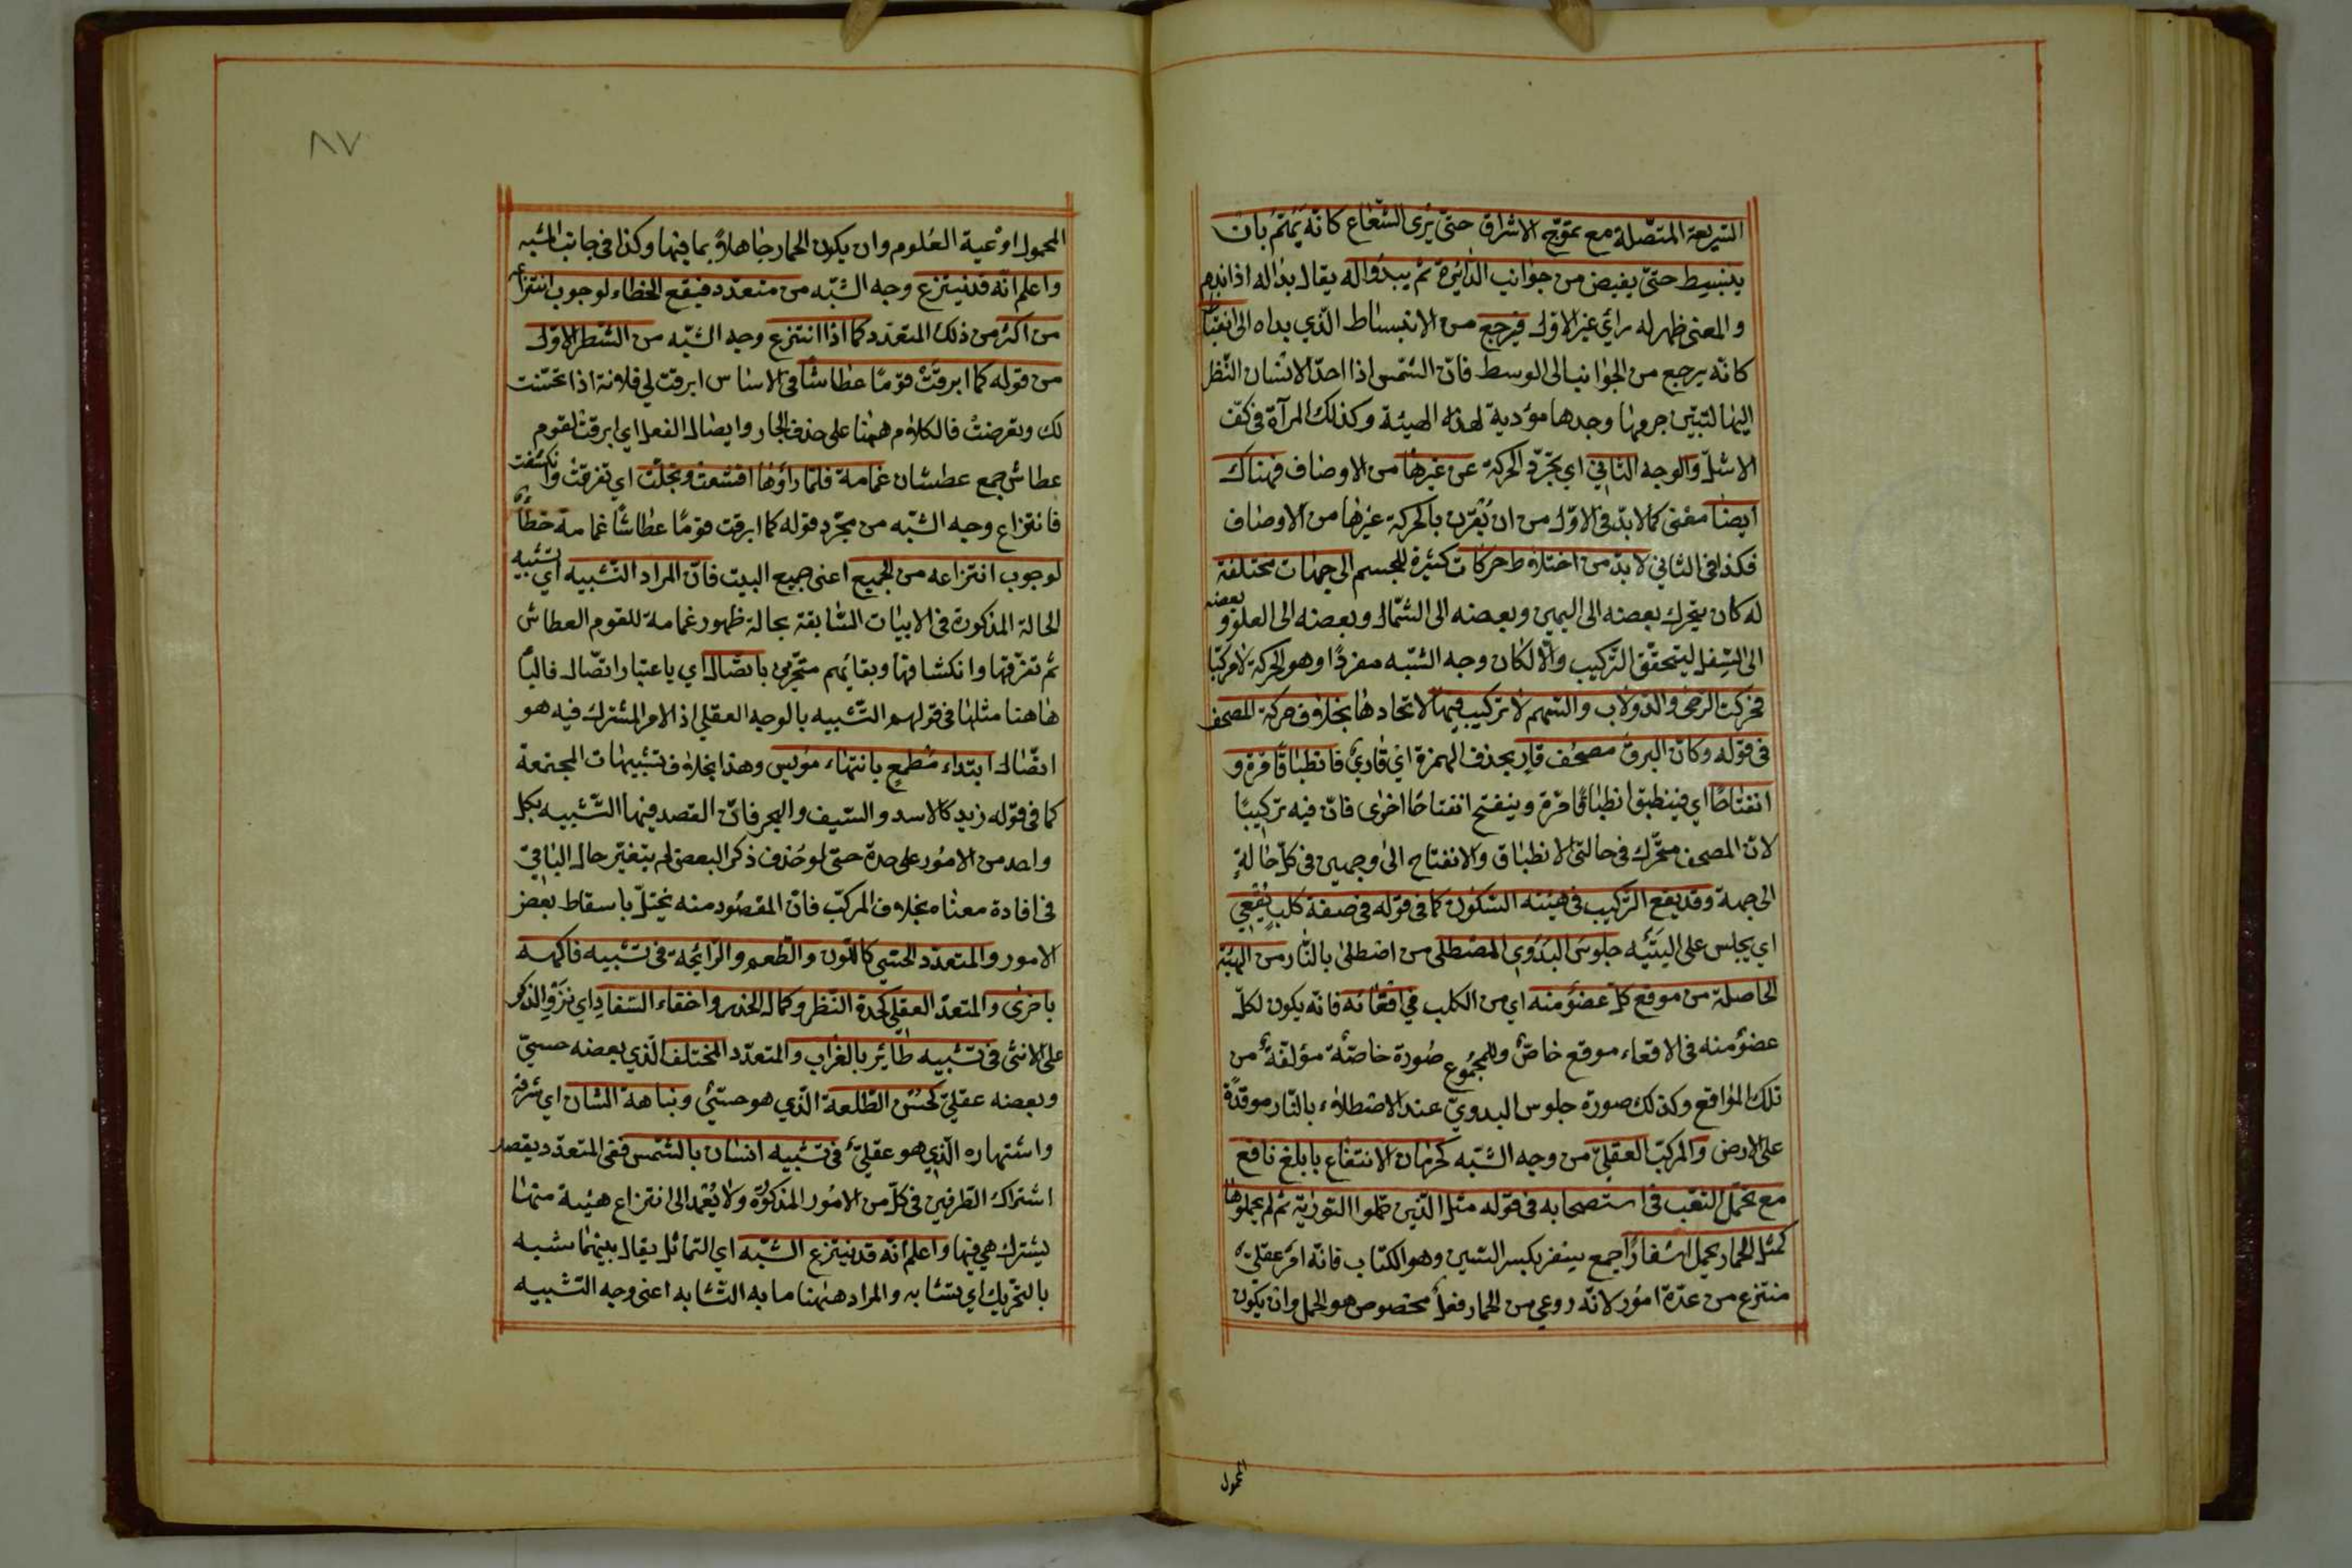 السريعة المتصلة مع تموّج الاشراق حتى يُرى الشّعاع كانّه يَهُمّ بان
ينبسط حتّى يفيض من جوانب الدائرة ثم يبدو اله يقال بدا له اذا ندم
والمعنى ظهر له رأي غير الاول فيرجع من الانبساط الّذي بداه الى انقباض
كانّه يرجع من الجوانب الى الوسط فانّ الشّمس اذا احدّ الانسان النّظر
اليها لتبيّن جرمها وجدها مؤدية لهذه الهيئة وكذلك المرآة في كفّ
الاشلّ والوجه الثاني اي تجرّد الحركة عن غيرها من الاوصاف فهناك
ايضا معنى كما لابدّ في الاوّل من ان يُقرن بالحركة غيرها من الاوصاف
فكذا في الثاني لابدّ من اختلاط حركات كثيرة للجسم الى جهات مختلفة
له كان يتحرك بعضه الى اليمين وبعضه الى الشّمال وبعضه الى العلوّ وبعضه
الى السّفل ليتحقّق التّركيب والّا لكان وجه الشّبه مفردًا وهو الحركة لا مركّبا
فحركت الرّحى والدّولاب والسّهم لا تركيب فيها لاتحادها بخلاف حركة المصحف
في قوله وكانّ البرق مصحف قارٍ بحذف الهمزة اي قاريٌ فانطباقًا مرّة و
انفتاحًا اي فينطبق انطباقًا مرّة وينفتح انفتاحًا اخرى فانّ فيه تركيبًا
لانّ المصحف متحرّك في حالتي الانطباق والانفتاح الى وجهين في كلّ حالةٍ
الى جهة وقد يقع التّركيب في هيئته السّكون كما في قوله في صفة كلبٍ يُقْعي
اي يجلس على اليَتَيْه جلوسَ البَدَويِ المصطلي من اصطلى بالنّار من الهيئة
الحاصلة من موقع كلّ عضوٍ منه اي من الكلب في اقعائه فانه يكون لكلّ
عضوٍ منه في الاقعاء موقع خاصٌ وللمجموع صُورة خاصّة مؤلفةٌ من
تلك المواقع وكذلك صورة جلوس البدويّ عند الاصطلاء بالنّار موقدةً
على الارض والمركب العقليّ من وجه الشّبه كحرمان الانتفاع بابلغ نافع
مع تحمّل التعب في استصحابه في قوله مثل الّذين حمّلوا التورية ثم لم يحملوها
كمثل الحمار يحمل اسفارًا جمع سِفر بكسر السّين وهو الكتاب فانّه امر عقليّ
منتزع من عدّة امور لانّه روعي من الحمار فعلٌ مخصوص هو الحمل وان يكون
المحمول
٨٧
المحمول اوْعية العُلوم وان يكون الحمار جاهلاً بما فيها وكذا في جانب المشبه
واعلم انّه قد ينتزع وجه الشّبه من متعدّد فيقع الخطاء لوجوب انتزاع
من اكثر من ذلك المتعدّد كما اذا انتزع وجه الشّبه من الشّطر الاوّل
من قوله كما ابرقتْ قومًا عطاشًا في الاساس ابرقت لي فلانة اذا تحسّنت
لك وتعرضتْ فالكلام ههنا على حذف الجار وايصال الفعل اي ابرقت لقوم
عطاش جمع عطشان غمامة فلمّا رأوها اقشعت وتجلّت اي تفرقت وانكشفت
فانتزاع وجه الشّبه من مجّرد قوله كما ابرقت قومًا عطاشًا غمامة خطأٌ
لوجوب انتزاعه من الجميع اعني جميع البيت فانّ المراد التّشبيه اي تشبيه
الحالة المذكورة في الابيات السّابقة بحالة ظهور غمامة للقوم العطاش
ثم تفرّقها وانكشافها وبقائهم متحيّرين باتصال اي باعتبار اتّصال فالبا
هاهنا مثلها في قولهم التّشبيه بالوجه العقلي اذ الامر المشترك فيه هو
اتّصال ابتداء مُطمعٍ بانتهاء مؤيسٍ وهذا بخلاف تشبيهات المجتمعة
كما في قوله زيد كالاسد والسّيف والبحر فانّ القصد فيها التّشبيه بكل
واحد من الامُور على حدة حتى لو حُذف ذكر البعض لم يتغيّر حال الباقي
في افادة معناه بخلاف المركّب فانّ المقصُود منه يختلّ باسقاط بعض
الامور والمتعدّد الحسّي كاللّون والطّعم والرّائحة في تشبيه فاكهة
باخرى والمتعدّد العقلي كحدة النّظر وكمال الحذر واخفاء السّفادِ اي نَزْوِ الذّكر
على الانثى في تشبيه طائرٍ بالغراب والمتعدّد المختلف الّذي بعضه حسيّ
وبعضه عقليّ كحُسْن الطّلعة الّذي هو حسّيٌ ونباهة الشان اي شرفه
واشتهاره الّذي هو عقليٌ في تشبيه انسان بالشّمس ففي المتعدّد يقصد
اشتراك الطّرفين في كلّ من الامُور المذكورة ولا يُعْمد الى انتزاع هيئة منها
يشترك هي فيها واعلم انّه قد ينتزع الشّبه اي التماثل يقال بينهما شبه
بالتّحريك اي تشابه والمراد ههنا ما به التّشابه اعني وجه التّشبيه